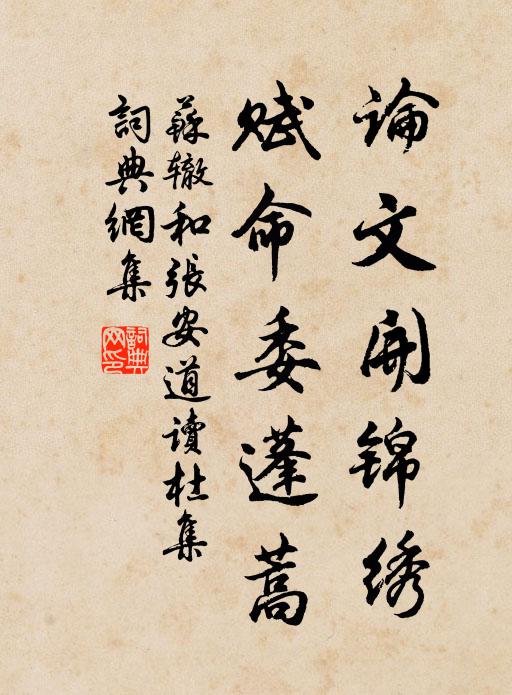 論文開锦绣
赋命委蓬蒿
蘇辙和張安道讀杜集
詞典網集
詞典網印